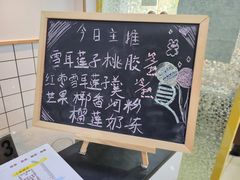 今日主推
雪耳莲子桃胶
红枣雪耳莲子羹
芒果椰香河粉
榴莲奶冻
3